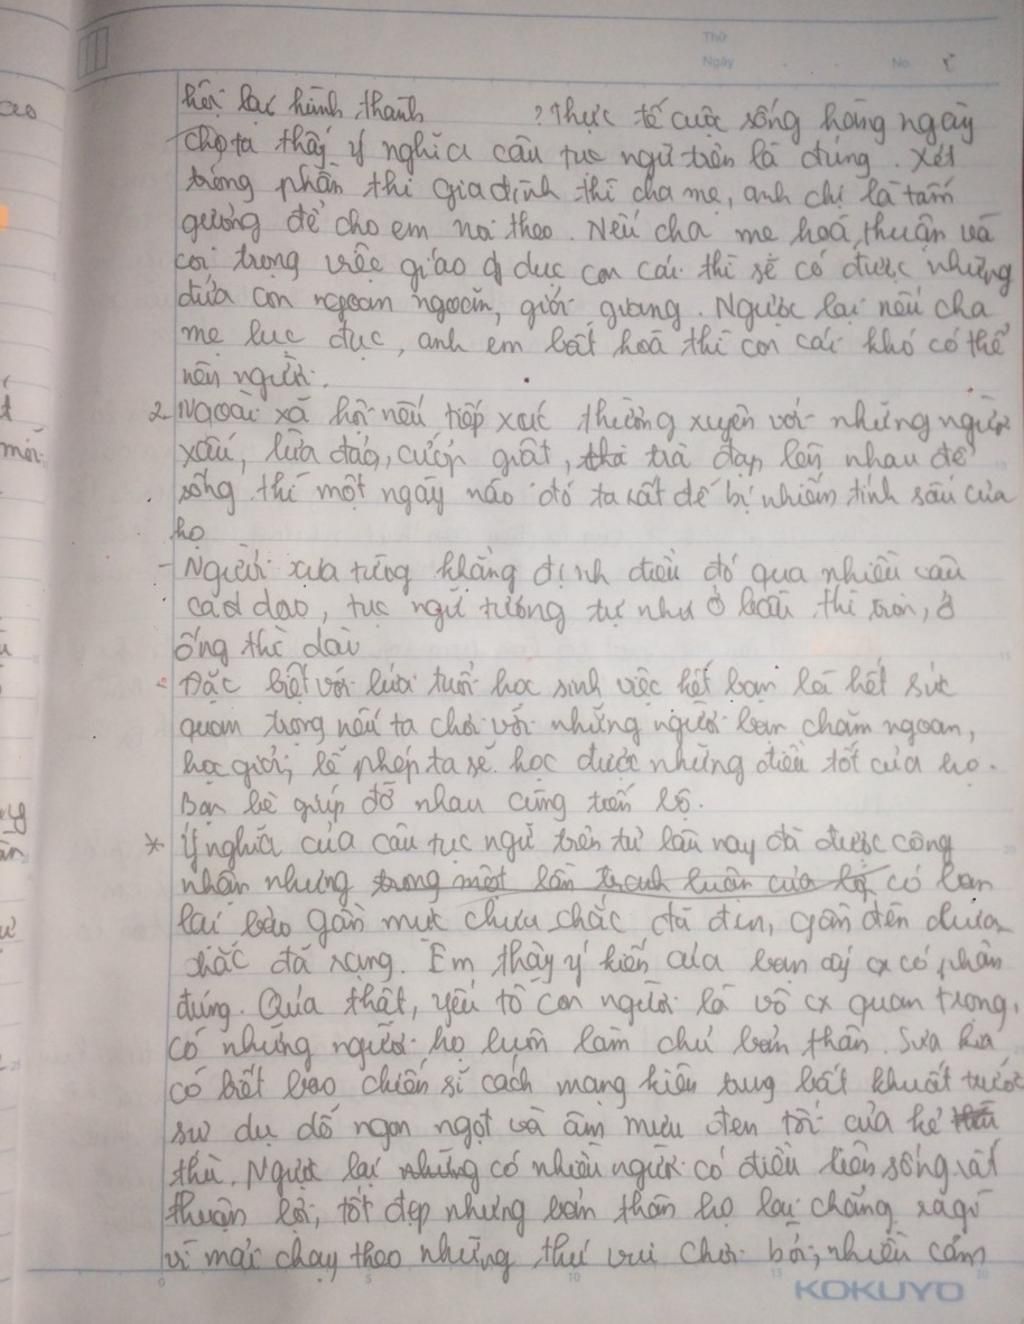 Thứ
Ngày No.
hội lại hình thành ? Thực tế cuộc sống hàng ngày
cho ta thấy ý nghĩa câu tục ngữ trên là đúng. Xét
trong phần thì gia đình thì cha mẹ, anh chị là tấm
gương để cho em noi theo. Nếu cha mẹ hoà thuận và
coi trọng việc giáo dục con cái thì sẽ có được những
đứa con ngoan ngoãn, giỏi giang. Ngược lại nếu cha
mẹ lục đục, anh em bất hoà thì con cái khó có thể
nên người.
2. Ngoài xã hội nếu tiếp xúc thường xuyên với những người
xấu, lừa đảo, cướp giật, trà đạp lên nhau để
sống thì một ngày nào đó ta rất dễ bị nhiễm tính sấu của
họ
- Người xưa từng khẳng định điều đó qua nhiều câu
cao dao, tục ngữ tương tự như ở bầu thì tròn, ở
ống thì dài
- Đặc biệt với lứa tuổi học sinh việc kết bạn là hết sức
quan trọng nếu ta chơi với những người bạn chăm ngoan,
học giỏi, lễ phép ta sẽ học được những điều tốt của họ.
Bạn bè giúp đỡ nhau cùng tiến bộ.
* Ý nghĩa của câu tục ngữ trên từ lâu nay đã được công
nhận nhưng trong một lần tranh luận của lớp có bạn
lại bảo gần mực chưa chắc đã đen, gần đèn chưa
chắc đã rạng. Em thấy ý kiến của bạn ấy cx có phần
đúng. Qủa thật, yếu tố con người là vô cx quan trọng,
có những người họ luôn làm chủ bản thân. Sưa kia
có biết bao chiến sĩ cách mạng kiên trung bất khuất trước
sự dụ dỗ ngon ngọt và âm mưu đen tối của kẻ
thù. Ngược lại những có nhiều người có điều kiện sống rất
thuận lợi, tốt đẹp nhưng bản thân họ lại chẳng ra gì
vì mải chạy theo những thú vui chơi bời, nhiều cám
KOKUYO